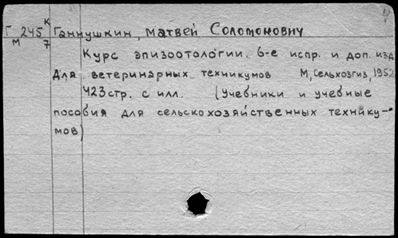 Г 245 К Ганнушкин, Матвей Соломонович
М 7
Курс эпизоотологии. 6-е испр. и доп. изд.
Для ветеринарных техникумов М, Сельхозгиз, 1952
423 стр. с илл. (Учебники и учебные
пособия для сельскохозяйственных технику-
мов)